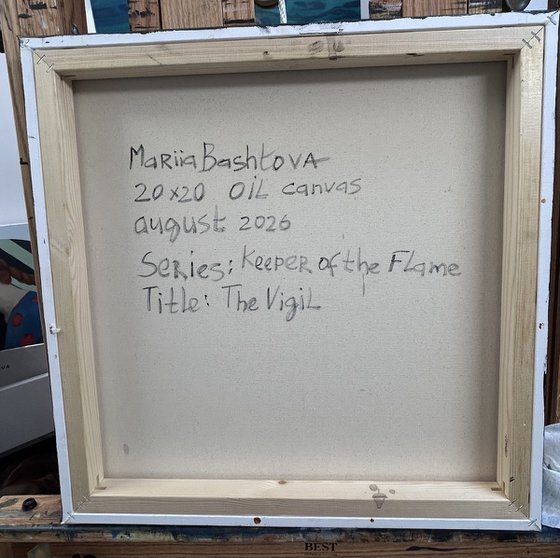 Mariia Bashtova
20x20 oil canvas
august 2026
Series: Keeper of the Flame
Title: The Vigil
BEST